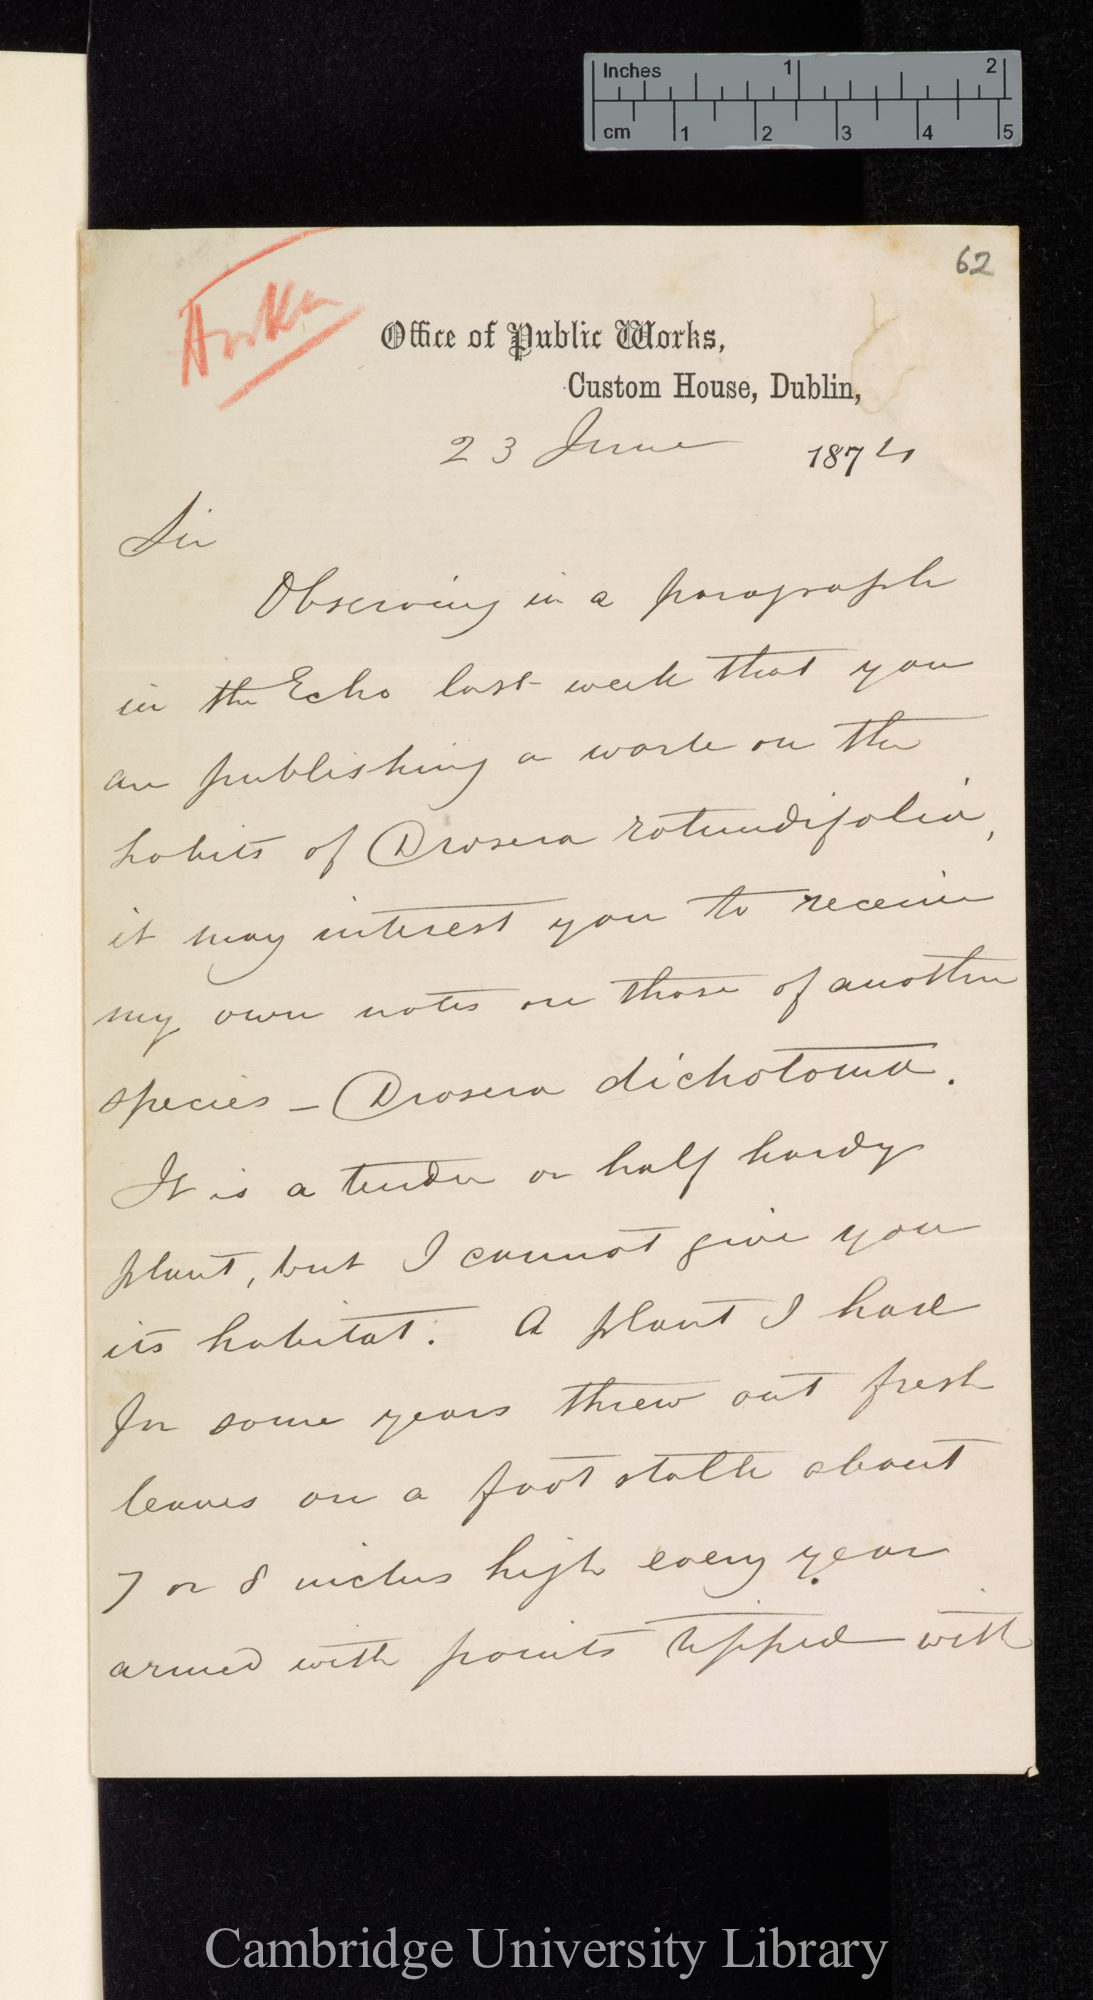 Inches 1 2
cm 1 2 3 4 5
62
Office of Public Works,
Custom House, Dublin,
23 June 1874
Sir
Observing in a paragraph
in the Echo last week that you
are publishing a work on the
habits of Drosera rotundifolia,
it may interest you to receive
my own notes on those of another
species – Drosera dichotoma.
It is a tender or half hardy
plant, but I cannot give you
its habitat. A plant I have
for some years threw out fresh
leaves on a foot stalk about
7 or 8 inches high every year
armed with points tipped with
Cambridge University Library